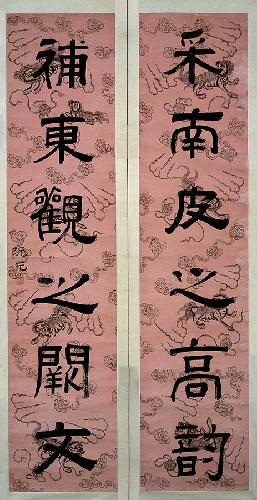 采南皮之高韵
補東觀之闕文
阮元